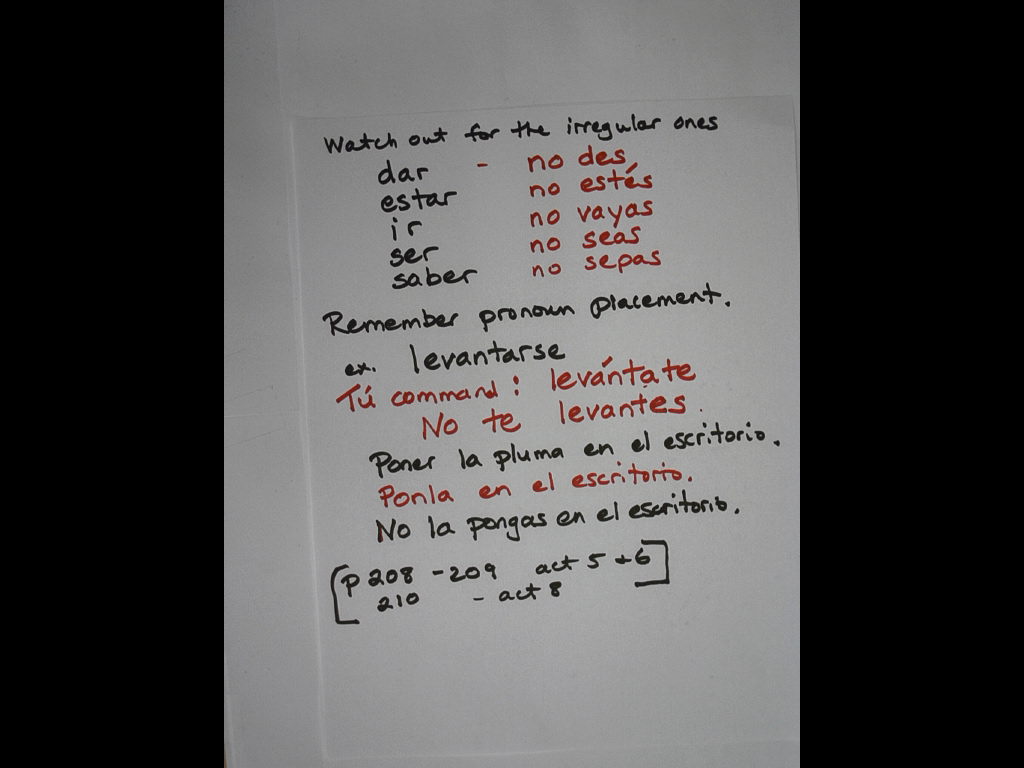 Watch out for the irregular ones
dar - no des
estar no estés
ir no vayas
ser no seas
saber no sepas
Remember pronoun placement.
ex. levantarse
Tú command: levántate
No te levantes.
Poner la pluma en el escritorio.
Ponla en el escritorio.
No la pongas en el escritorio.
[p 208 - 209 act 5 + 6]
210 - act 8